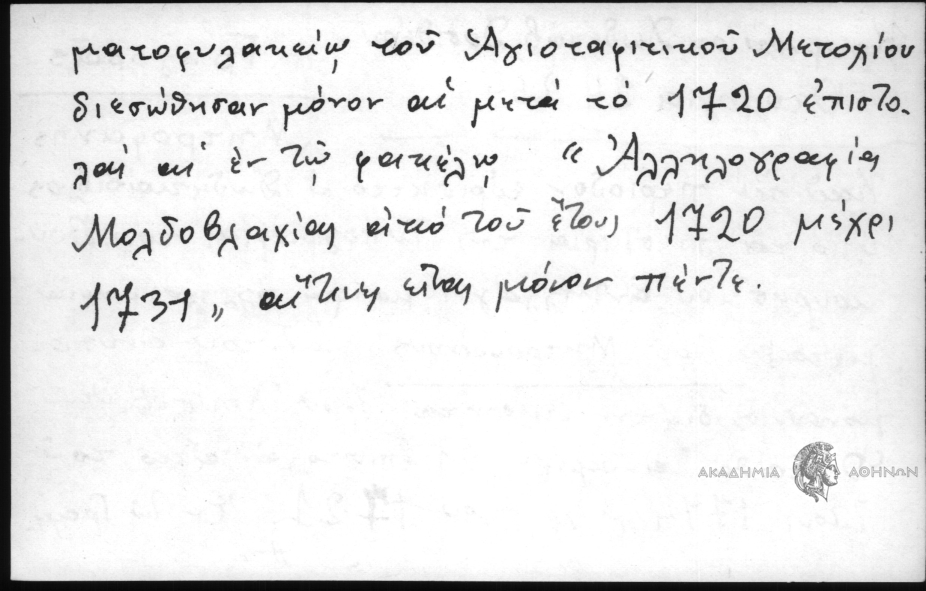 ματοφυλακείῳ τοῦ Ἁγιοταφιτικοῦ Μετοχίου
διεσώθησαν μόνον αἱ μετά τό 1720 ἐπιστο-
λαί αἱ ἐν τῷ φακέλῳ "Ἀλληλογραφία
Μολδοβλαχίας ἀπό τοῦ ἔτους 1720 μέχρι
1731" αἵτινες εἶναι μόνον πέντε.
ΑΚΑΔΗΜΙΑ ΑΘΗΝΩΝ